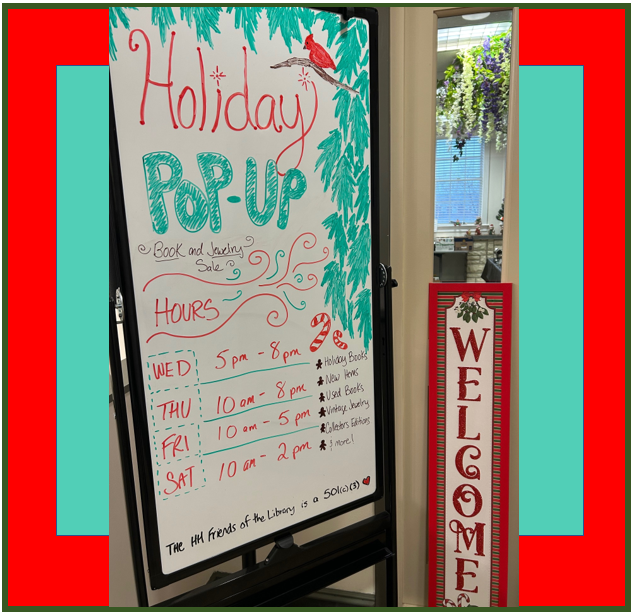 Holiday
POP-UP
Book and Jewelry
Sale
HOURS
WED 5 pm - 8 pm
THU 10 am - 8 pm
FRI 10 am - 5 pm
SAT 10 am - 2 pm
Holiday Books
New Items
Used Books
Vintage Jewelry
Collectors Editions
& more!
THE HH Friends of the Library is a 501(c)(3)
WELCOME